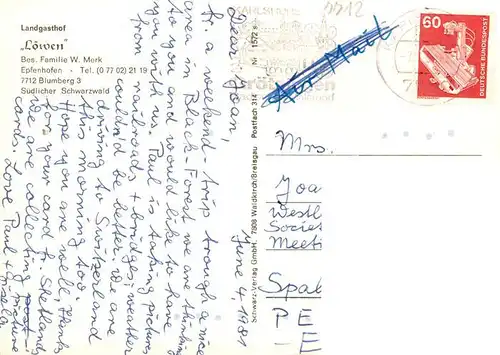 Landgasthof
"Löwen"
Bes. Familie W. Mork
Epfenhofen - Tel. (0 77 02) 21 19
7712 Blumberg 3
Südlicher Schwarzwald
June 4, 1981
Dear Joan,
At a weekend-trip trough a nice
area in Black-Forest we are thinking
to you and would like to have
you with us. Paul is taking pictures
from railroads + bridges; weather
could'nd be better. We are
driving to Switzerland
this morning too.
Hope you are well, thanks
for your card f. Shetland,
we are collecting picture
cards. Love Paul +
Schwarz-Verlag GmbH. 7808 Waldkirch/Breisgau Postfach 314 Nr. 1572
KARLSRUHE
Air Mail
60
DEUTSCHE BUNDESPOST
Mrs.
Joa
Westl
Societ
Meeti
Spal
PE
- E